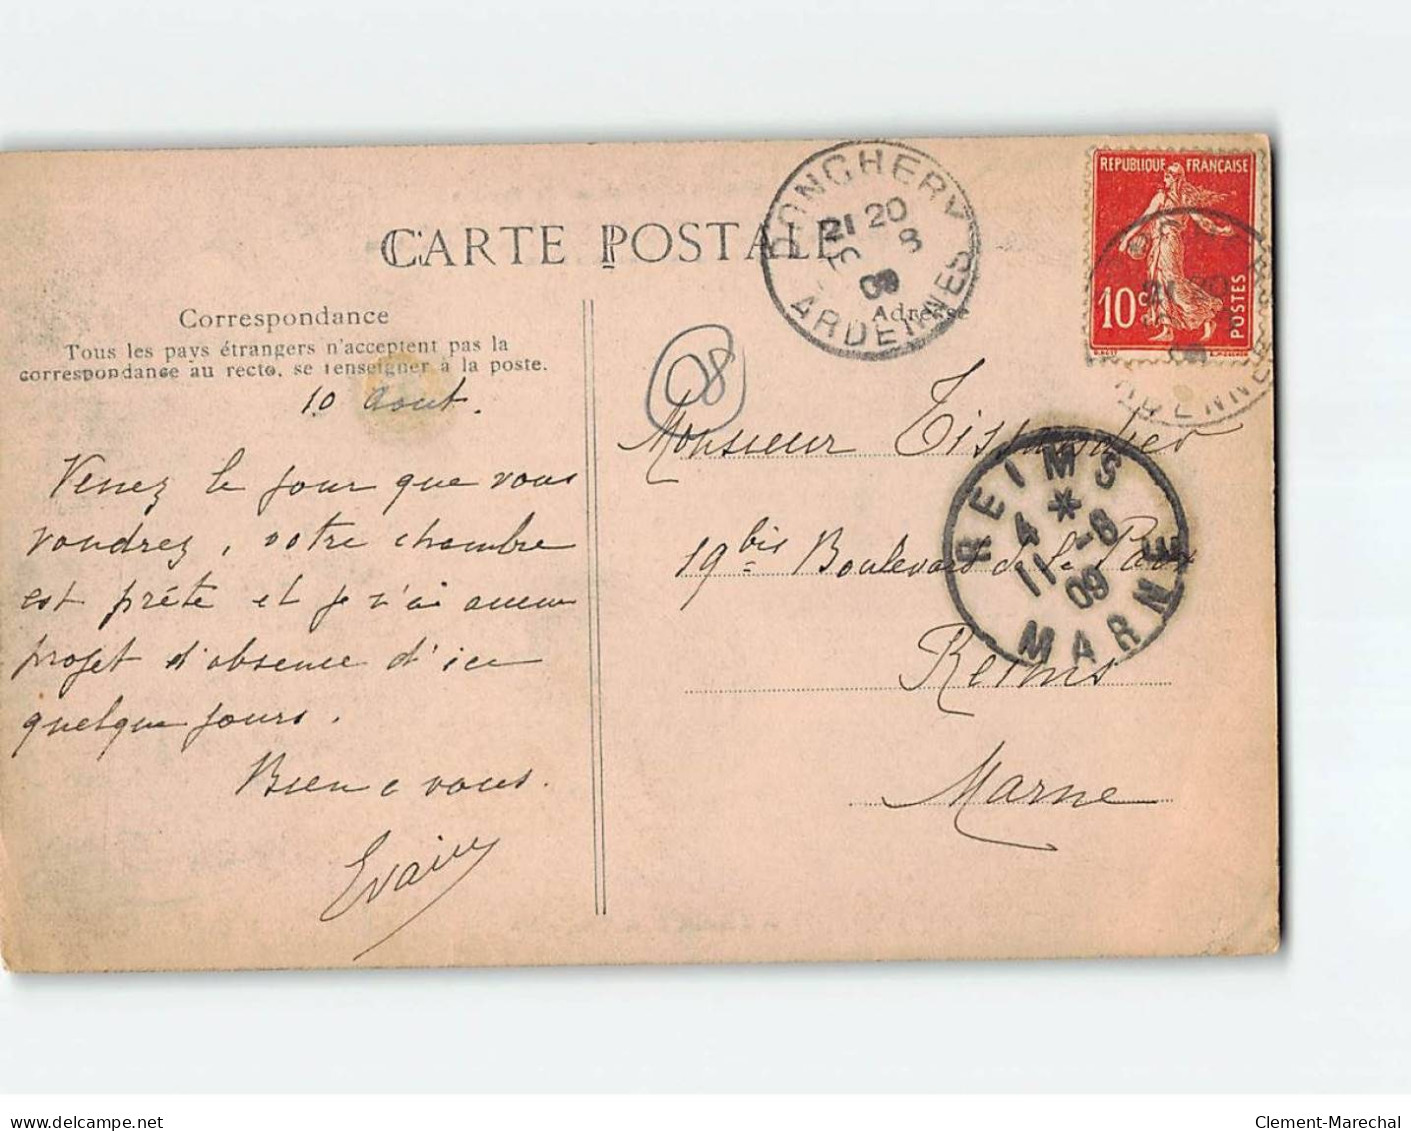 CARTE POSTALE
Correspondance
Tous les pays étrangers n'acceptent pas la
correspondance au recto, se renseigner à la poste.
10 Aout.
Venez le jour que vous
voudrez, votre chambre
est prête et je n'ai aucun
projet d'absence d'ici
quelque jours.
Bien a vous.
DONCHERY
21 20
10 8
09
ARDENNES
Adresse
08
REPUBLIQUE FRANÇAISE
10c
POSTES
21 20
09
ARDENNES
Monsieur
19 bis Boulevard de la Paix
Reims
Marne
REIMS
4 *
11 -8
09
MARNE
www.delcampe.net
Clement-Marechal